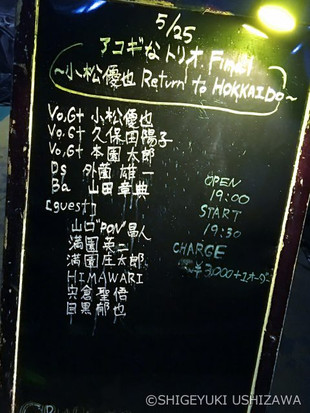 5/25
アコギなトリオ Final
~小松優也 Return to HOKKAIDO~
Vo.Gt 小松優也
Vo.Gt 久保田陽子
Vo.Gt 本園太郎
Ds 外薗雄一
Ba 山田章典
[guest]
山口"PON"昌人
満園英二
満園庄太郎
HIMAWARI
宍倉聖悟
目黒郁也
OPEN
19:00
START
19:30
CHARGE
¥3,000+1オーダー
©SHIGEYUKI USHIZAWA